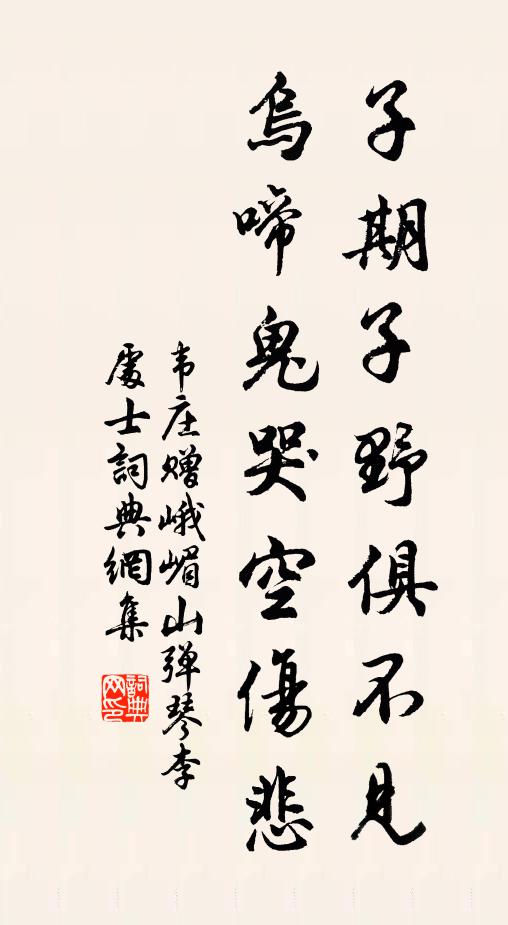 子期子野俱不見
烏啼鬼哭空傷悲
韦庄赠峨嵋山弹琴李
處士詞典網集
詞典网印